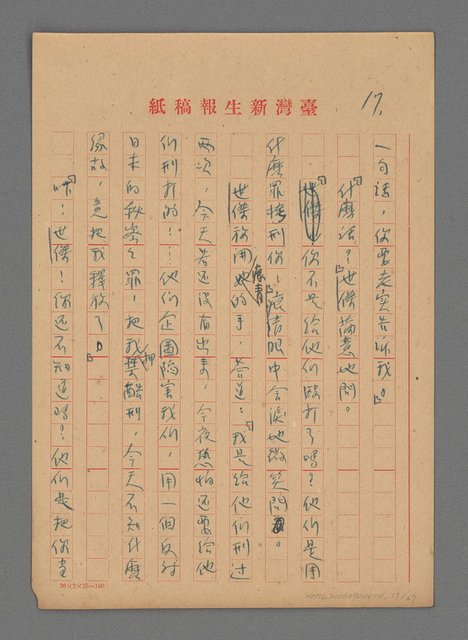 臺灣新生報稿紙
17.
一句話，你要老實告訴我。」
「什麼話？」世傑蓄意地問。
「你不是給他們毆打了嗎？他們是用
什麼罪拷刑你？」痕清眼中含淚地微笑問。
世傑放開她的手，答道：「我是給他們刑過
兩次，今天若還沒有出去，今夜恐怕還要給他
們刑打的！！他們企圖陷害我們，用一個反対
日本的秘密之罪，把我押 酷刑，今天不知什麼
緣故，竟把我釋放了。」
「咔！世傑！你还不知道嗎？他們是把你当
36×2×15=100